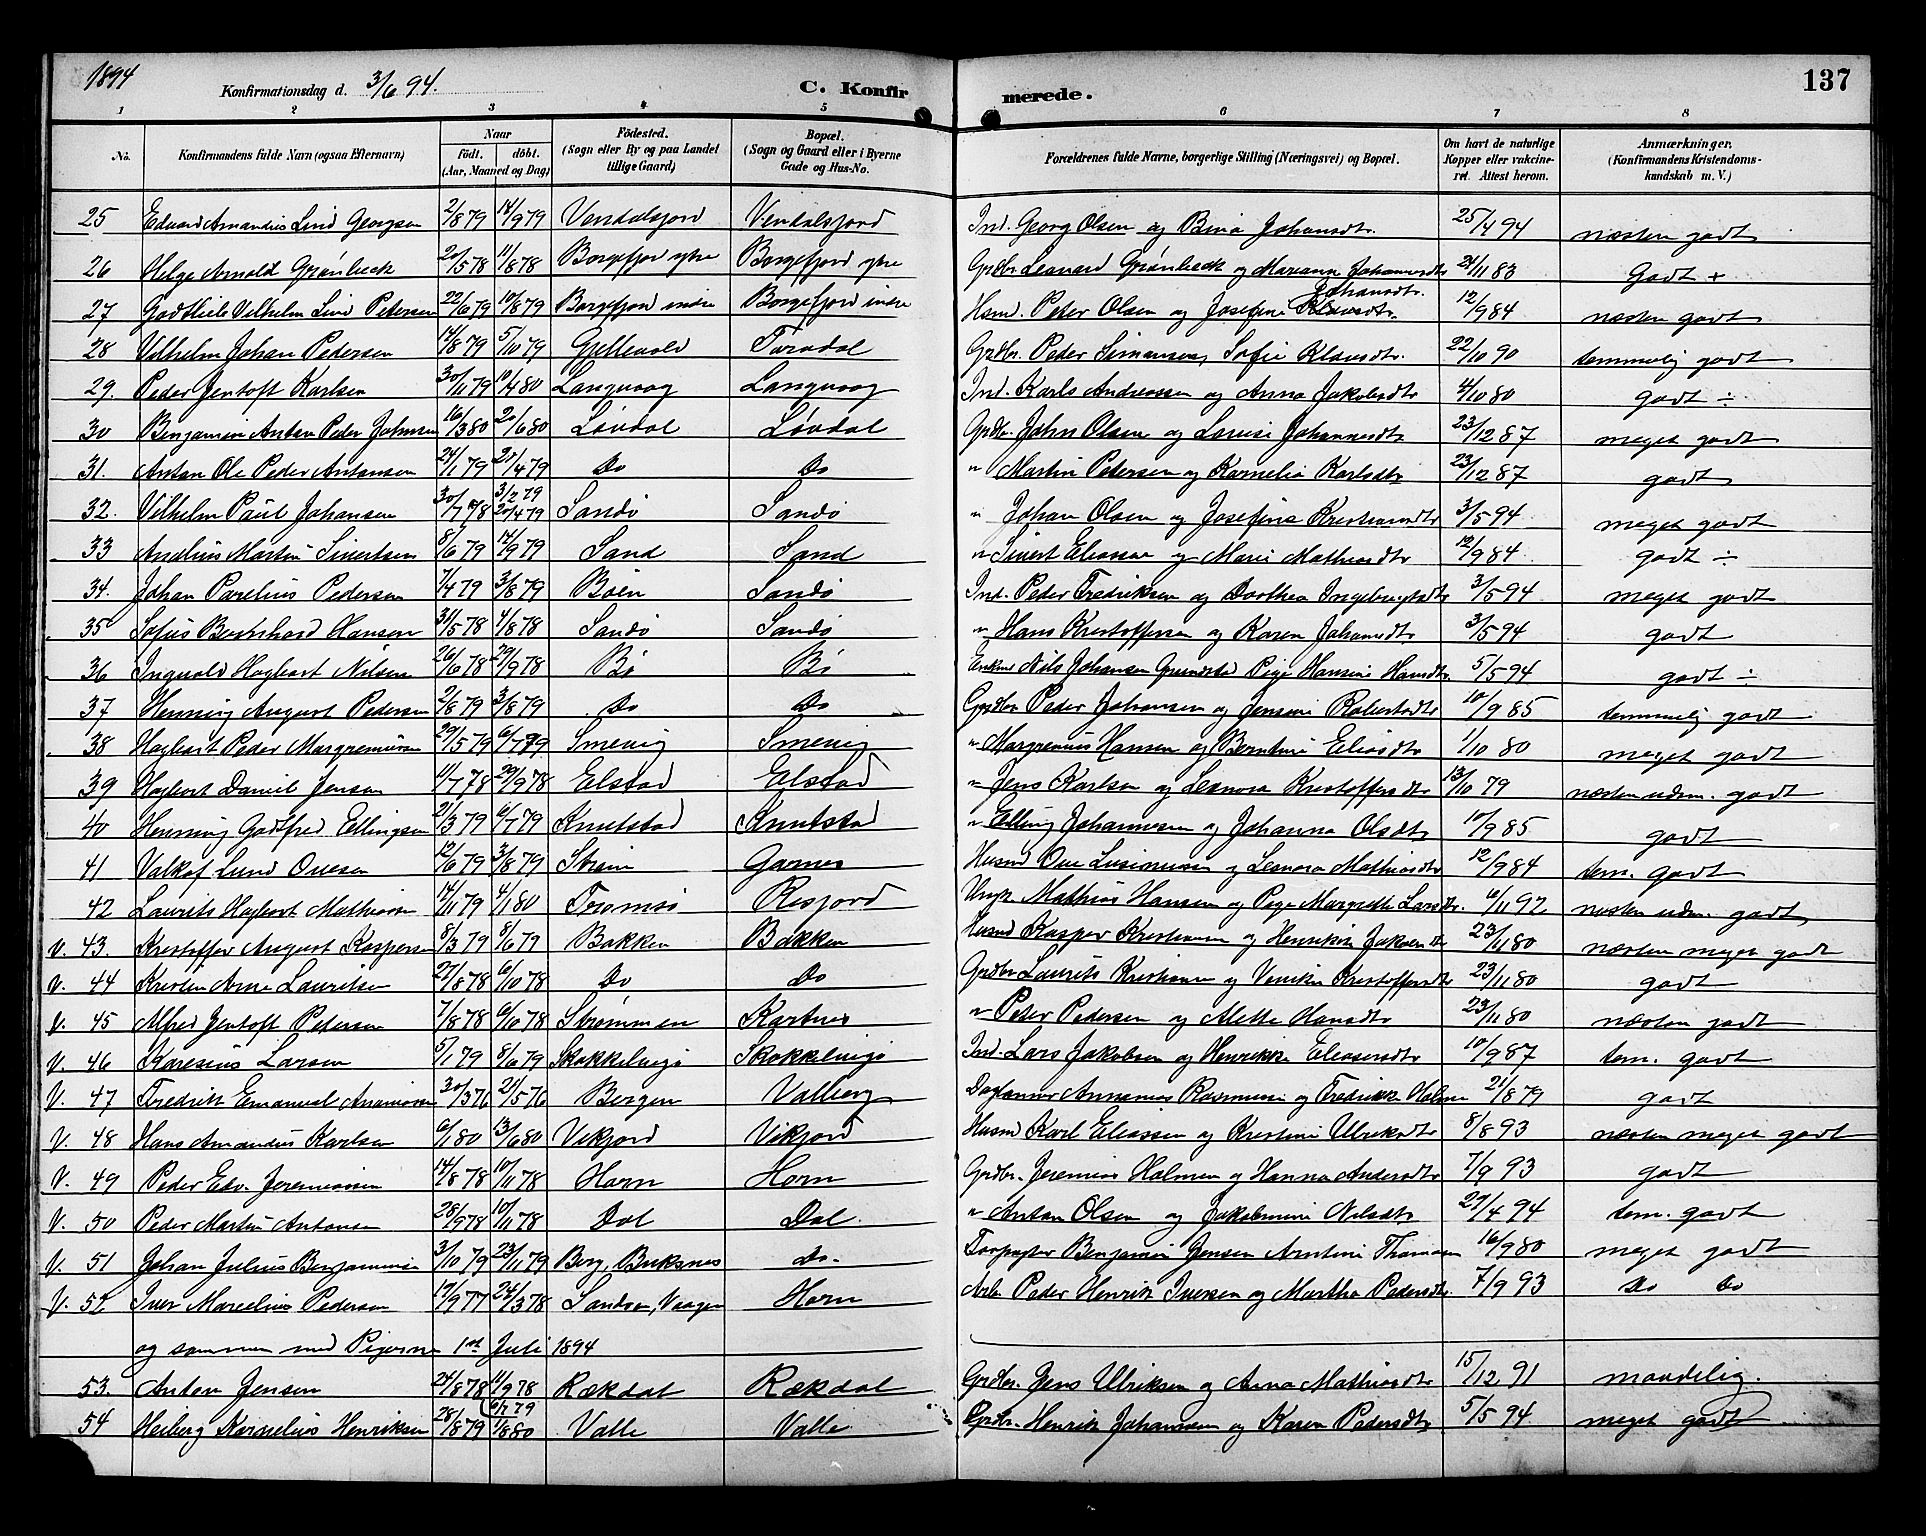 1894
Konfirmationsdag d. 3/6 94. C. Konfirmerede. 137
1 2 3 4 5 6 7 8
No. Konfirmandens fulde Navn (ogsaa Efternavn) Naar födt. döbt. (Aar, Maaned og Dag) Födested. (Sogn eller By og paa Landet tillige Gaard) Bopæl. (Sogn og Gaard eller i Byerne Gade og Hus-No. Forældrenes fulde Navne, borgerlige Stilling (Næringsvei) og Bopæl. Om havt de naturlige Kopper eller vakcineret. Attest herom. Anmærkninger, (Konfirmandens Kristendomskundskab m. V.)
25 Edvard Amandus Lind Georgsen 2/8 79 14/9 79 Vendalsjord Vendalsjord Ind. Georg Olsen og Bina Johansdtr. 25/4 94 næsten godt
26 Helge Arnold Grønbeck 20/5 78 11/8 78 Borgefjor ytre Borgefjord ytre Grdbr. Leonard Grønbeck og Mariann Johannesdtr 21/11 83 Godt +
27 Godtlieb Vilhelm Lind Petersen 22/6 79 10/8 79 Borgefjord indre Borgefjord indre Hsmd. Peter Olsen og Josefine Johansdtr. 12/9 84 næsten godt
28 Vilhelm Johan Pedersen 14/8 79 5/10 79 Gjellevold Torvdal Grdbr. Peder Simonsen, Sofie Klausdtr. 22/10 90 temmelig godt
29. Peder Jentoft Karlsen 30/11 79 10/4 80 Langvaag Langvaag Ind. Karls Andreassen og Anna Jakobsdtr 4/10 80 godt ÷
30 Benjamin Anton Peder Johnsen 16/3 80 20/6 80 Løvdal Løvdal Grdbr. John Olsen og Lovise Johannesdtr 23/12 87 meget godt
31. Anton Ole Peder Antonsen 24/1 79 20/4 79 Do Do " Martin Petersen og Kornelia Karlsdtr 23/12 87 godt
32. Vilhelm Paul Johansen 30/7 78 3/2 79 20/4 79 Sandö Sandö " Johan Olsen og Josefine Kristiansdtr 3/5 94 meget godt
33 Andreas Martin Sivertsen 8/6 79 14/9 79 Sand Sand " Sivert Eliassen og Marie Mathiasdtr 12/9 84 godt ÷
34. Johan Parelius Pedersen 7/4 79 3/8 79 Böen Sandö Ind. Peder Fredriksen og Dorthea Ingebrigtsdtr 3/5 94 meget godt
35 Sofus Bernhard Hansen 31/5 78 4/8 78 Sandö Sandö " Hans Kristoffersen og Karen Johansdtr 3/5 94 godt
36 Ingvald Hagbart Nilsen 26/6 78 29/9 78 Bö Bö Enkem Nils Johansen Grundstad Pige Hansine Hansdtr. 5/5 94 godt ÷
37 Henning August Pedersen 2/8 79 3/8 79 Do Do Grdbr Peder Johansen og Jensine Robertsdtr 10/9 85 temmelig godt
38 Hagbart Peder Margreniusen 29/5 79 6/7 79 Smevig Smevig " Margrenius Hansen og Berntine Eliasdtr 1/10 80 meget godt
39 Hagbart Daniel Jensen 11/7 78 29/9 78 Elstad Elstad " Jens Karlsen og Leonora Kristoffersdtr 13/10 79 næsten udm. godt
40 Henning Godtfred Ellingsen 21/3 79 6/7 79 Knutstad Knutstad " Elling Johannesen og Johanna Olsdtr 10/9 85 godt
41 Valkof Lund Ovesen 12/6 79 3/8 79 Strøm Garnes Husmd Ove Lusiensen og Leonora Mathiasdtr 12/9 84 tem. godt
42 Laurits Hagbart Mathiasen 14/11 79 4/1 80 Tromsö Resjord Ungk. Mathias Hansen og Pige Margrethe Larsdtr. 6/11 92 næsten udm. godt
V. 43. Kristoffer August Kaspersen 8/3 79 8/6 79 Bakken Bakken Husmd Kasper Kristiansen og Henrikke Jakobsdtr 23/11 80 næsten meget godt
V. 44 Kristen Arne Lauritsen 27/8 78 6/10 78 Do Do Grdbr Laurits Kristiansen og Venikke Kristoffersdtr 23/11 80 godt
V. 45 Alfred Jentoft Petersen 7/8 78 6/6 78 Strømmen Kartnes " Peter Pedersen og Mette Hansdtr 23/11 80 næsten godt
V. 46 Karesius Larsen 5/1 79 8/6 79 Skokkelvigö Skokkelvigö Ind. Lars Jakobsen og Henrikke Eliasersdtr 10/9 87 tem. godt
V. 47 Fredrik Emanuel 30/3 76 21/5 76 Bergen Valberg Rasmusen og Fredrikke Holmen 21/8 79 godt
V. 48 Hans Amandus Karlsen 6/1 80 13/6 80 Vikjord Vikjord Husmd Karl Eliassen og Kristine Ulriksdtr 8/8 93 næsten meget godt
V. 49 Peder Edv. Jeremiassen 14/8 78 10/11 78 Horn Horn Grdbr. Jeremias Holmen og Hanna Andersdtr 7/9 93 godt
V. 50 Peder Martin Antonsen 28/9 78 10/11 78 Dal Dal. " Anton Olsen og Jakobmine Nilsdtr 27/4 94 tem. godt
V. 51 Johan Julius Benjaminsen 3/10 79 23/11 79 Berg, Buksnes Do. Forpagter Benjamin Jensen Arntine Thomasen 16/9 80 meget godt
V. 52 Iver Marcelius Pedersen 19/9 77 24/3 78 Sandven, Vaagen Horn Arb. Peder Henrik Iversen og Martha Pedersdtr 7/9 93 Do Do
og sammen med Pigerne 1st Juli 1894
53. Anton Jensen 24/8 78 11/9 78 Rækdal Rækdal Grdbr. Jens Ulriksen og Anna Mathiasdtr 15/12 91 maadelig.
54 Heiberg Kornelius Henriksen 28/8 79 (6/7 79 1/8 80 Valle Valle Grdbr. Henrik Johansen og Karen Pedersdtr 5/5 94 meget godt